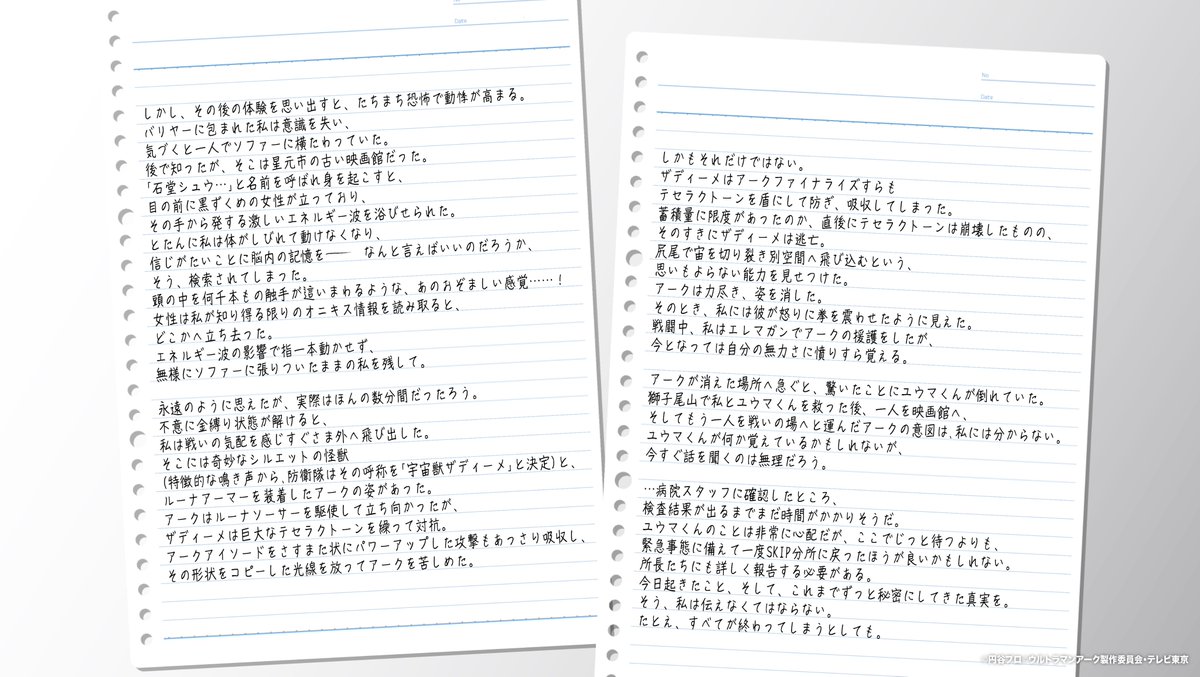 No
Date
しかし、その後の体験を思い出すと、たちまち恐怖で動悸が高まる。
バリヤーに包まれた私は意識を失い、
気づくと一人でソファーに横たわっていた。
後で知ったが、そこは星元市の古い映画館だった。
「石堂シュウ…」と名前を呼ばれ身を起こすと、
目の前に黒ずくめの女性が立っており、
その手から発する激しいエネルギー波を浴びせられた。
とたんに私は体がしびれて動けなくなり、
信じがたいことに脳内の記憶を―― なんと言えばいいのだろうか、
そう、検索されてしまった。
頭の中を何千本もの触手が這いまわるような、あのおぞましい感覚……！
女性は私が知り得る限りのオニキス情報を読み取ると、
どこかへ立ち去った。
エネルギー波の影響で指一本動かせず、
無様にソファーに張りついたままの私を残して。
永遠のように思えたが、実際はほんの数分間だったろう。
不意に金縛り状態が解けると、
私は戦いの気配を感じすぐさま外へ飛び出した。
そこには奇妙なシルエットの怪獣
(特徴的な鳴き声から、防衛隊はその呼称を「宇宙獣ザディーメ」と決定)と、
ルーナアーマーを装着したアークの姿があった。
アークはルーナソーサーを駆使して立ち向かったが、
ザディーメは巨大なテセラクトーンを繰って対抗。
アークアイソードをさすまた状にパワーアップした攻撃もあっさり吸収し、
その形状をコピーした光線を放ってアークを苦しめた。
No
Date
しかもそれだけではない。
ザディーメはアークファイナライズすらも
テセラクトーンを盾にして防ぎ、吸収してしまった。
蓄積量に限度があったのか、直後にテセラクトーンは崩壊したものの、
そのすきにザディーメは逃亡。
尻尾で宙を切り裂き別空間へ飛び込むという、
思いもよらない能力を見せつけた。
アークは力尽き、姿を消した。
そのとき、私には彼が怒りに拳を震わせたように見えた。
戦闘中、私はエレマガンでアークの援護をしたが、
今となっては自分の無力さに憤りすら覚える。
アークが消えた場所へ急ぐと、驚いたことにユウマくんが倒れていた。
獅子尾山で私とユウマくんを救った後、一人を映画館へ、
そしてもう一人を戦いの場へと運んだアークの意図は、私には分からない。
ユウマくんが何か覚えているかもしれないが、
今すぐ話を聞くのは無理だろう。
…病院スタッフに確認したところ、
検査結果が出るまでまだ時間がかかりそうだ。
ユウマくんのことは非常に心配だが、ここでじっと待つよりも、
緊急事態に備えて一度SKIP分所に戻ったほうが良いかもしれない。
所長たちにも詳しく報告する必要がある。
今日起きたこと、そして、これまでずっと秘密にしてきた真実を。
そう、私は伝えなくてはならない。
たとえ、すべてが終わってしまうとしても。
©円谷プロ・ウルトラマンアーク製作委員会・テレビ東京